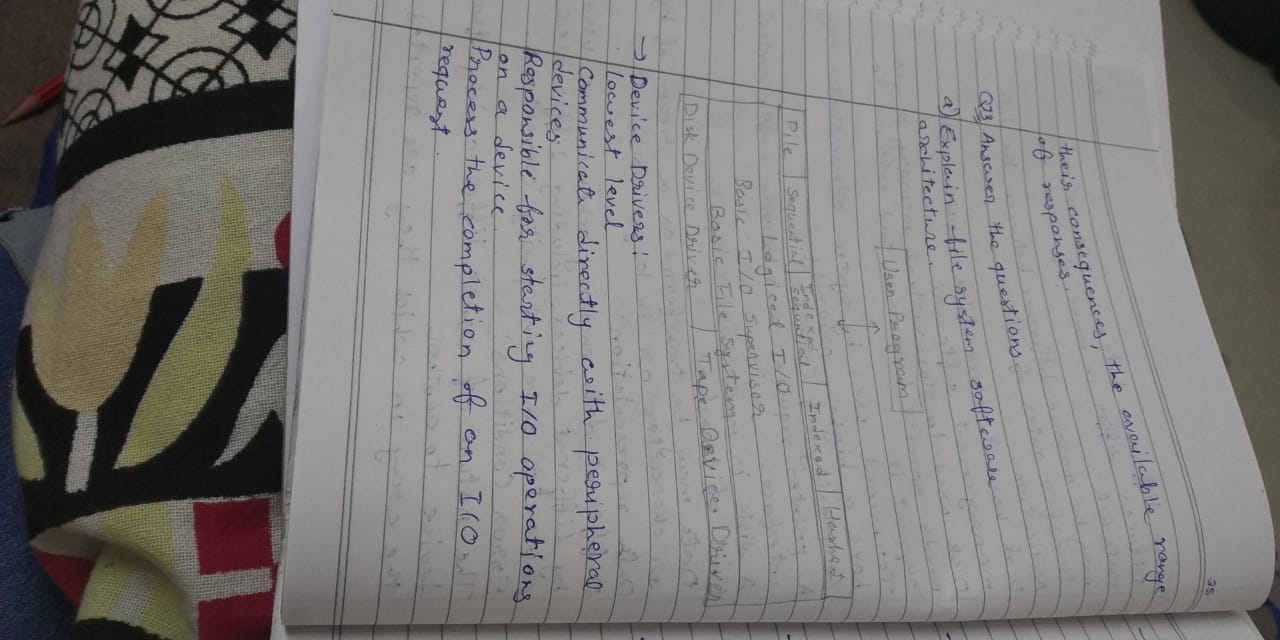 25
their consequences, the available range
of responses.
Q3 Answer the questions.
a) Explain file system software
architecture.
User Program
Pile | Sequential | Indexed Sequential | Indexed | Hashed
Logical I/O
Basic I/O Supervisor
Basic File System
Disk Device Driver | Tape Device Driver
→ Device Drivers:
lowest level
Communicate directly with peripheral
devices
Responsible for starting I/O operations
on a device
Process the completion of an I/O
request.